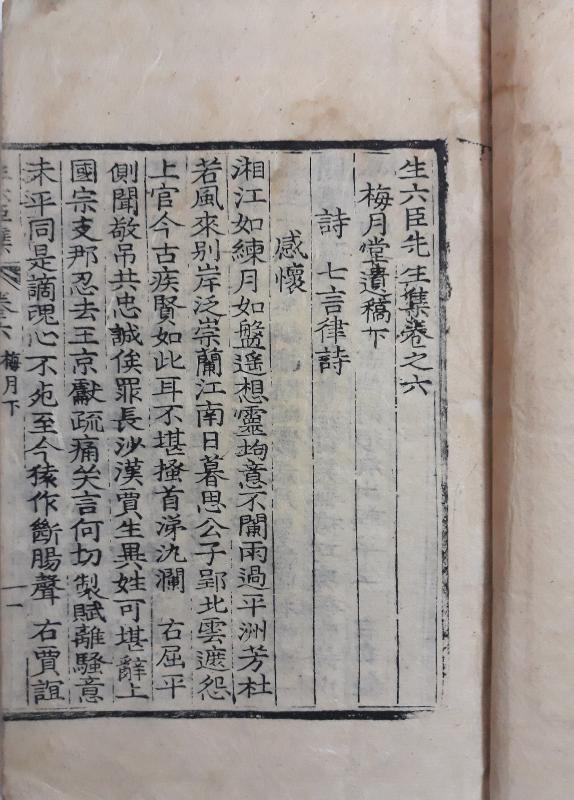 生六臣先生集卷之六
梅月堂遺稿下
詩 七言律詩
感懷
湘江如練月如盤遥想靈均意不闌雨過平洲芳杜
若風來别岸泛崇蘭江南日暮思公子郢北雲遮怨
上官今古疾賢如此耳不堪搔首涕汍瀾 右屈平
側聞敬吊共忠誠俟罪長沙漢賈生異姓可堪辭上
國宗支那忍去王京獻疏痛矣言何切製賦離騷意
未平同是謫魂心不死至今猿作斷腸聲 右賈誼
卷六 梅月下 一